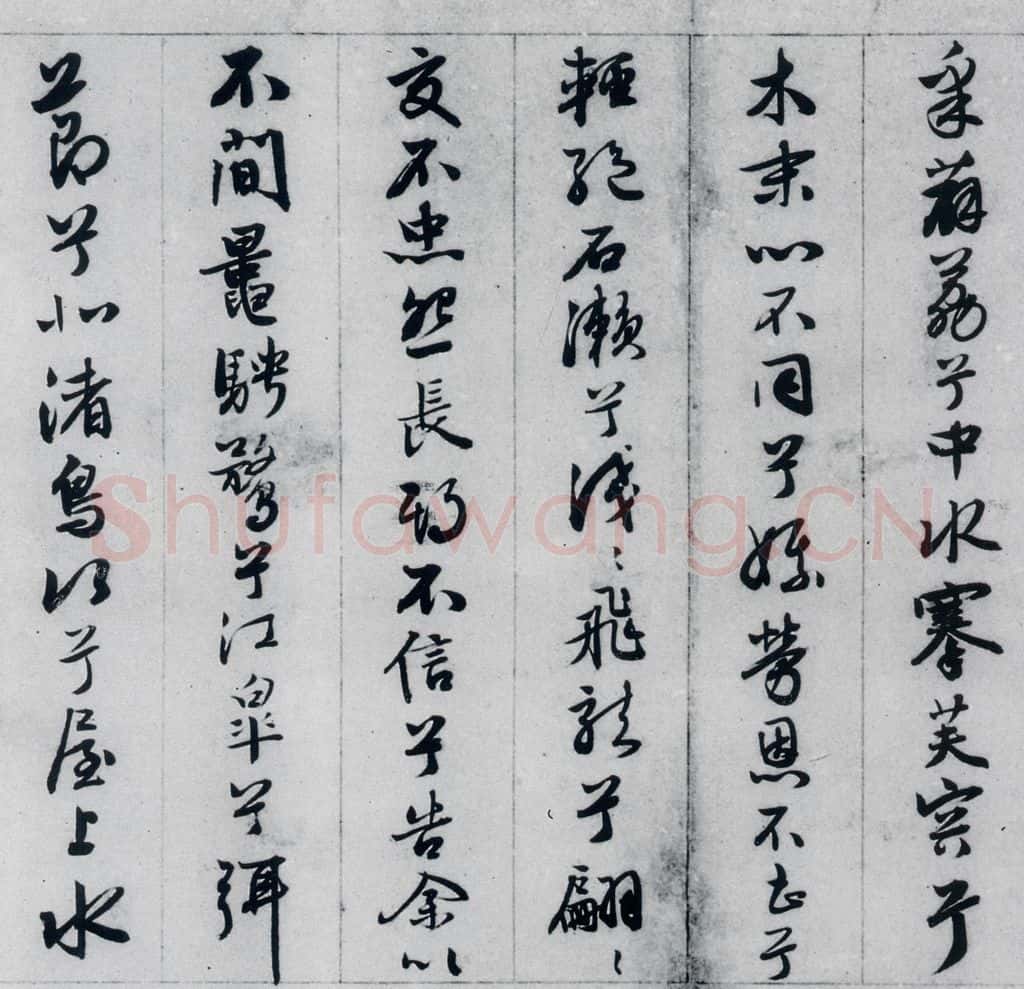 采薜荔兮中水搴芙容兮
木末心不同兮媒勞恩不甚兮
輕絕石瀨兮淺〻飛龍兮翩〻
交不忠怨長期不信兮告余以
不間鼂騁騖兮江皋兮弭
節兮北渚鳥次兮屋上水
Shufawang.CN